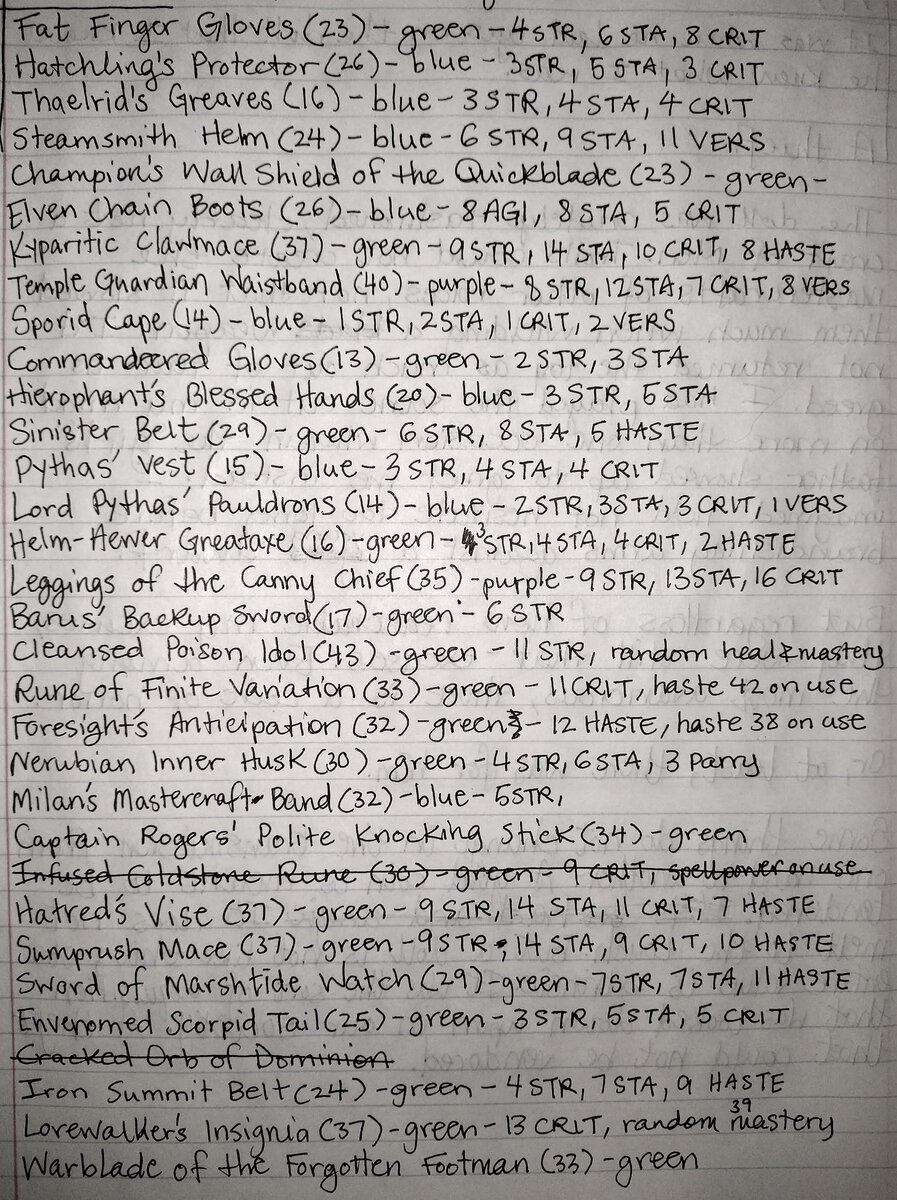 Fat Finger Gloves (23) - green - 4 STR, 6 STA, 8 CRIT
Hatchling's Protector (26) - blue - 3 STR, 5 STA, 3 CRIT
Thaelrid's Greaves (16) - blue - 3 STR, 4 STA, 4 CRIT
Steamsmith Helm (24) - blue - 6 STR, 9 STA, 11 VERS
Champion's Wall Shield of the Quickblade (23) - green -
Elven Chain Boots (26) - blue - 8 AGI, 8 STA, 5 CRIT
Kyparitic Clawmace (37) - green - 9 STR, 14 STA, 10 CRIT, 8 HASTE
Temple Guardian Waistband (40) - purple - 8 STR, 12 STA, 7 CRIT, 8 VERS
Sporid Cape (14) - blue - 1 STR, 2 STA, 1 CRIT, 2 VERS
Commandeered Gloves (13) - green - 2 STR, 3 STA
Hierophant's Blessed Hands (20) - blue - 3 STR, 5 STA
Sinister Belt (29) - green - 6 STR, 8 STA, 5 HASTE
Pythas' Vest (15) - blue - 3 STR, 4 STA, 4 CRIT
Lord Pythas' Pauldrons (14) - blue - 2 STR, 3 STA, 3 CRIT, 1 VERS
Helm-Hewer Greataxe (16) - green - 3 STR, 4 STA, 4 CRIT, 2 HASTE
Leggings of the Canny Chief (35) - purple - 9 STR, 13 STA, 16 CRIT
Barus' Backup Sword (17) - green - 6 STR
Cleansed Poison Idol (43) - green - 11 STR, random heal & mastery
Rune of Finite Variation (33) - green - 11 CRIT, haste 42 on use
Foresight's Anticipation (32) - green - 12 HASTE, haste 38 on use
Nerubian Inner Husk (30) - green - 4 STR, 6 STA, 3 Parry
Milan's Mastercraft Band (32) - blue - 5 STR,
Captain Rogers' Polite Knocking Stick (34) - green
Infused Coldstone Rune (30) - green - 9 CRIT, spellpower on use
Hatred's Vise (37) - green - 9 STR, 14 STA, 11 CRIT, 7 HASTE
Sumprush Mace (37) - green - 9 STR, 14 STA, 9 CRIT, 10 HASTE
Sword of Marshtide Watch (29) - green - 7 STR, 7 STA, 11 HASTE
Envenomed Scorpid Tail (25) - green - 3 STR, 5 STA, 5 CRIT
Cracked Orb of Dominion
Iron Summit Belt (24) - green - 4 STR, 7 STA, 9 HASTE
Lorewalker's Insignia (37) - green - 13 CRIT, random 39 mastery
Warblade of the Forgotten Footman (33) - green